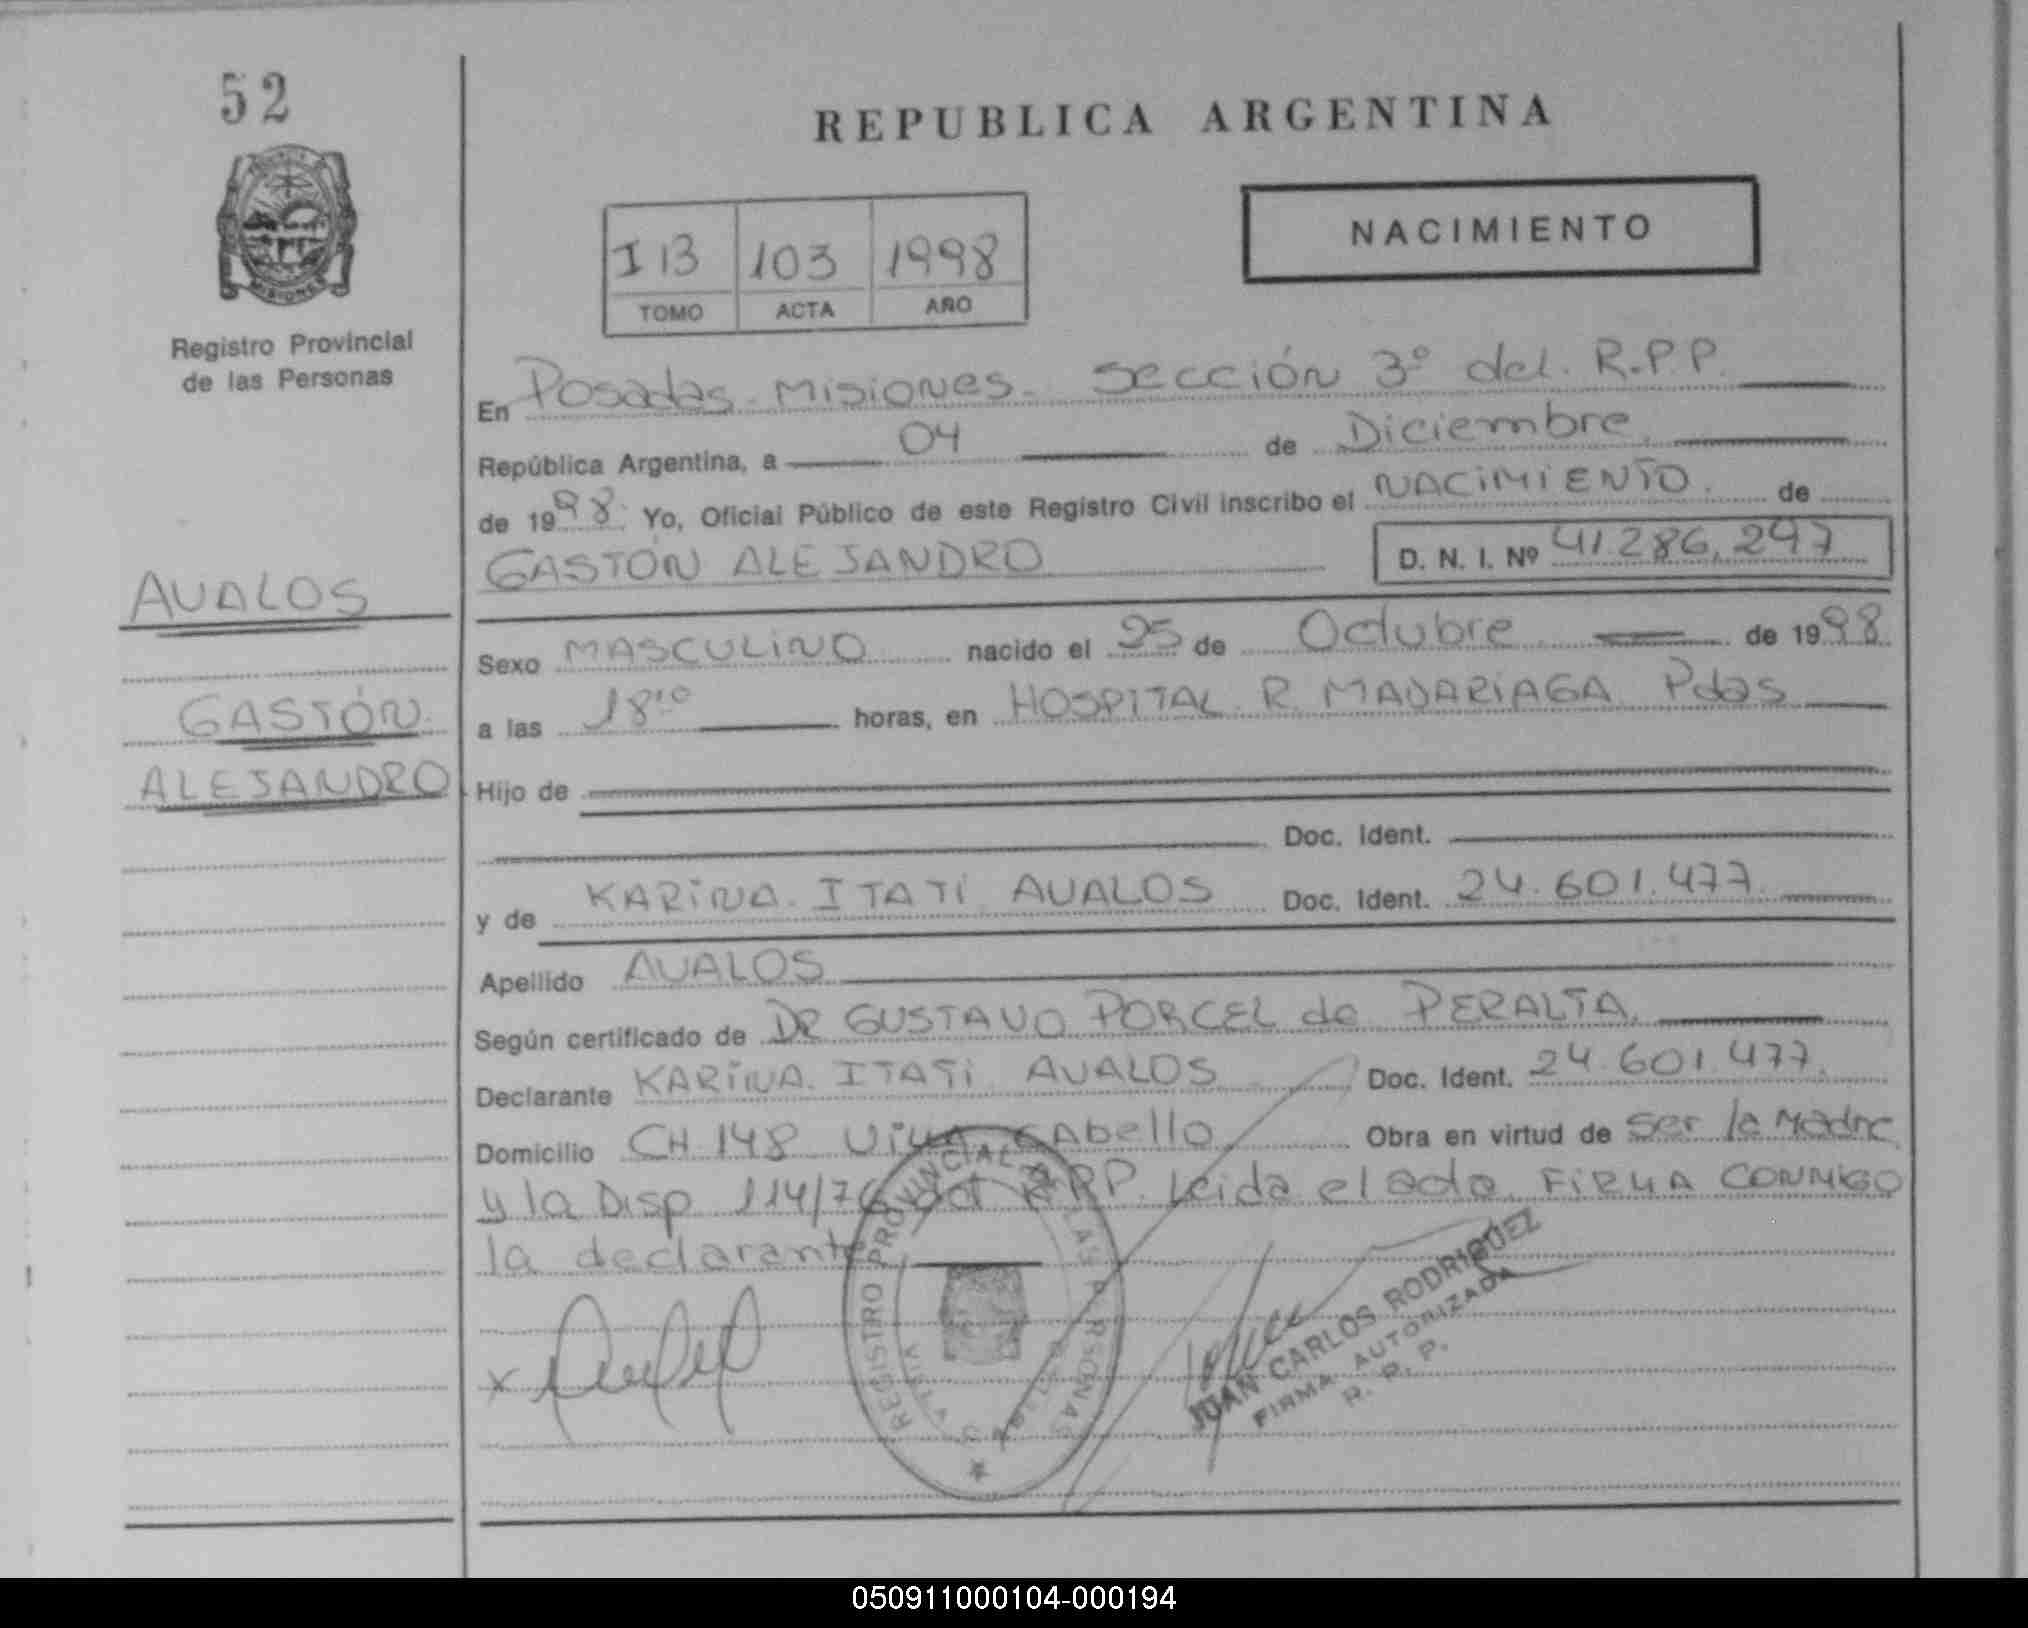 52
REPUBLICA ARGENTINA
MISIONES
Registro Provincial
de las Personas
I 13 103 1998
TOMO ACTA AÑO
NACIMIENTO
En Posadas - Misiones - Sección 3º del R.P.P.
República Argentina, a 04 de Diciembre
de 1998 Yo, Oficial Público de este Registro Civil inscribo el NACIMIENTO de
GASTÓN ALEJANDRO D. N. I. Nº 41.286.247
AVALOS
GASTÓN
ALEJANDRO
Sexo MASCULINO nacido el 25 de Octubre de 1998
a las 18 horas, en HOSPITAL R. MADARIAGA Pdas
Hijo de
Doc. Ident.
y de KARINA ITATI AVALOS Doc. Ident. 24.601.477
Apellido AVALOS
Según certificado de DR GUSTAVO PORCEL de PERALTA
Declarante KARINA ITATI AVALOS Doc. Ident. 24.601.477
Domicilio CH 148 Villa Cabello Obra en virtud de Ser la Madre
y la Disp. 114/76 del R.P.P. Leida el acta FIRMA CONMIGO
la declarante
REGISTRO PROVINCIAL DE LAS PERSONAS
JUAN CARLOS RODRIGUEZ
FIRMA AUTORIZADA
R. P. P.
050911000104-000194